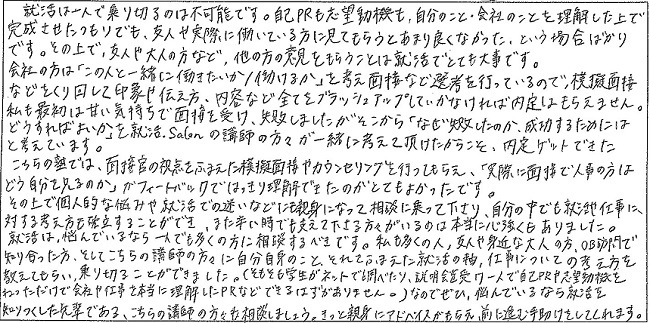 就活は一人で乗り切るのは不可能です。自己PRも志望動機も、自分のこと・会社のことを理解した上で
完成させたつもりでも、友人や実際に働いている方に見てもらうとあまり良くなかった、という場合ばかり
です。その上で、友人や大人の方など、他の方の意見をもらうことは就活でとても大事です。
会社の方は「この人と一緒に働きたいか/働けるか」を考え面接など選考を行っているので、模擬面接
などをくり回して印象や伝え方、内容など全てをブラッシュアップしていかなければ内定はもらえません。
私も最初は甘い気持ちで面接を受け、失敗しましたがそこから「なぜ失敗したのか、成功するためには
どうすればよいか」を就活Salonの講師の方々が一緒に考えて頂けたからこそ、内定ゲットできた
と考えています。
こちらの塾では、面接官の視点をふまえた模擬面接やカウンセリングを行ってもらえ、「実際に面接で人事の方は
どう自分を見るのか」がフィードバックではっきり理解できたのがとてもよかったです。
その上で個人的な悩みや就活での迷いなどにも親身になって相談に乗って下さり、自分の中でも就活や仕事に
対する考え方も確立することができ、また辛い時でも支えて下さる方々がいるのは本当に心強くもありました。
就活は、悩んでいるなら一人でも多くの方に相談するべきです。私も多くの人、友人や身近な大人の方、OB訪問で
知り合った方、そしてこちらの講師の方々に自分自身のこと、それをふまえた就活の軸、仕事についての考え方を
教えてもらい、乗り切ることができました。(そもそも学生がネットで調べたり、説明会受け一人で自己PRや志望動機を
ねっただけで会社や仕事を本当に理解したPRなどできるはずがありません。)なのでぜひ、悩んでいるなら就活を
知りつくした先輩である、こちらの講師の方々にも相談しましょう。きっと親身にアドバイスがもらえ、前に進む手助けをしてくれます。